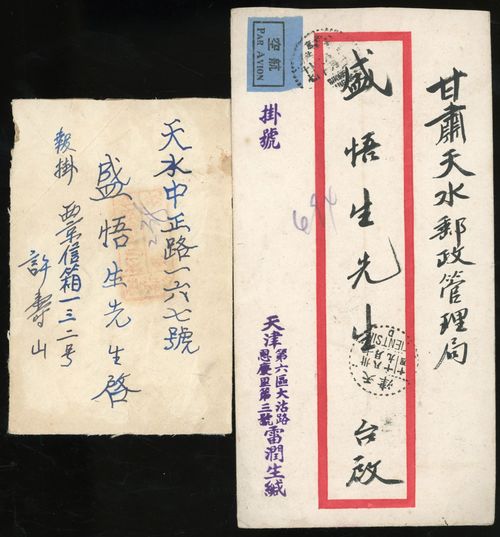 天水中正路一六七號
盛悟生先生啓
報掛 西京信箱一三二号
許壽山
甘肅天水郵政管理局
盛悟生先生 台啟
掛號
天津第六區大沽路
恩慶里第三號 雷潤生緘
航空
PAR AVION
天津
TIENTSIN